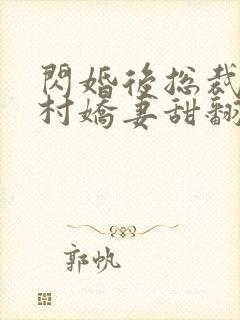 閃婚後總裁
村嬌妻甜翻
郭帆